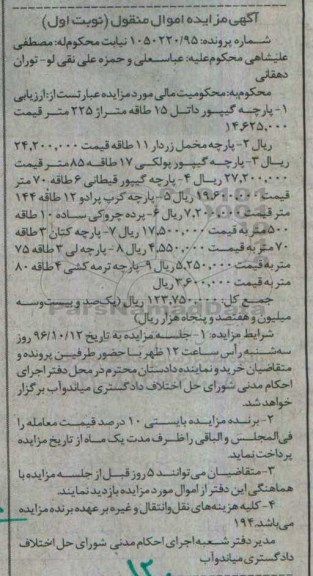 آگهی مزایده اموال منقول (نوبت اول)
شماره پرونده: ۱۰۵۰۲۲۰/۹۵ نیابت محکوم‌له: مصطفی
علیشاهی محکوم‌علیه: عباسعلی و حمزه علی نقی لو- توران
دهقانی
محکوم‌به: محکومیت مالی مورد مزایده عبارتست از: ارزیابی
۱- پارچه گیپور دانتل ۱۵ طاقه متراژ ۲۲۵ متر قیمت
۱۴,۶۲۵,۰۰۰
ریال ۲- پارچه مخمل زردار ۱۱ طاقه قیمت ۲۴,۲۰۰,۰۰۰
ریال ۳- پارچه گیپور پولکی ۱۷ طاقه ۸۵ متر قیمت
۲۷,۲۰۰,۰۰۰ ریال ۴- پارچه گیپور قیطانی ۶ طاقه ۷۰ متر
قیمت ۱۹,۶۰۰,۰۰۰ ریال ۵- پارچه کرپ پرادو ۱۲ طاقه ۱۴۴
متر قیمت ۷,۲۰۰,۰۰۰ ریال ۶- پرده چروکی ساده ۱۰ طاقه
۵۰۰ متر به قیمت ۱۷,۵۰۰,۰۰۰ ریال ۷- پارچه کتان ۳ طاقه
۷۰ متر به قیمت ۴,۵۵۰,۰۰۰ ریال ۸- پارچه لی ۳ طاقه ۷۵
متر به قیمت ۵,۲۵۰,۰۰۰ ریال ۹- پارچه ترمه کشی ۴ طاقه ۸۰
متر به قیمت ۳,۶۰۰,۰۰۰ ریال
جمع کل: ۱۲۳,۷۵۰,۰۰۰ ریال (یکصد و بیست و سه
میلیون و هفتصد و پنجاه هزار ریال)
شرایط مزایده: ۱- جلسه مزایده به تاریخ ۹۶/۱۰/۱۲ روز
سه‌شنبه رأس ساعت ۱۲ ظهر با حضور طرفین پرونده و
متقاضیان خرید و نماینده دادستان محترم در محل دفتر اجرای
احکام مدنی شورای حل اختلاف دادگستری میاندوآب برگزار
خواهد شد.
۲- برنده مزایده بایستی ۱۰ درصد قیمت معامله را
فی‌المجلس و الباقی را ظرف مدت یک ماه از تاریخ مزایده
پرداخت نماید.
۳- متقاضیان می‌توانند ۵ روز قبل از جلسه مزایده با
هماهنگی این دفتر از اموال مورد مزایده بازدید نمایند.
۴- کلیه هزینه‌های نقل و انتقال و غیره بر عهده برنده مزایده
می‌باشد. ۱۹۴
مدیر دفتر شعبه اجرای احکام مدنی شورای حل اختلاف
دادگستری میاندوآب